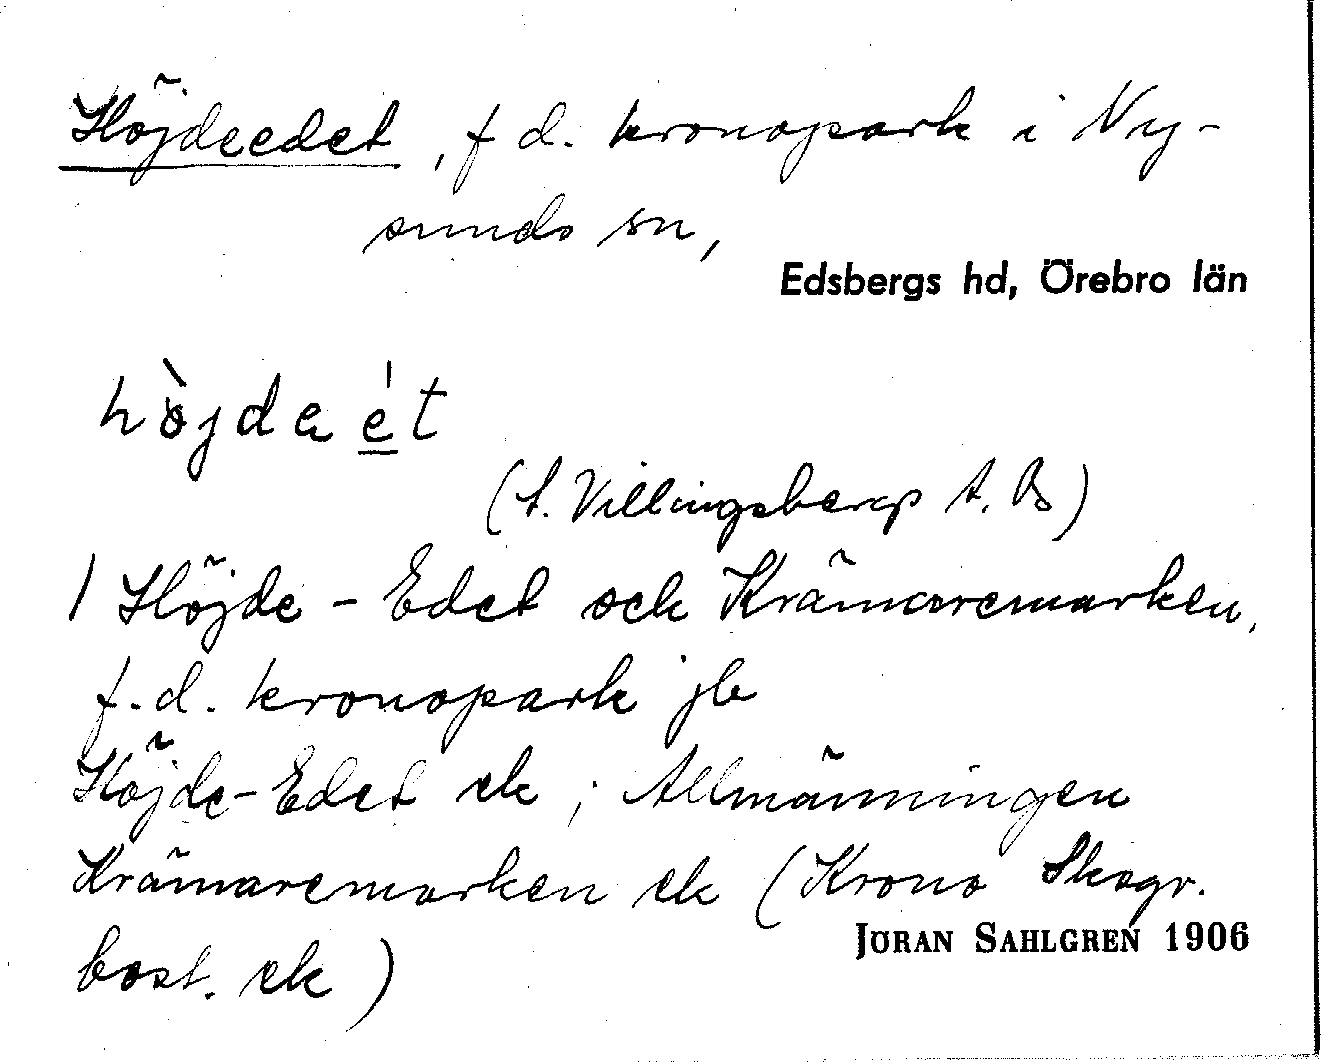 Höjdeedet, f d. kronopark i Ny-
sunds sn,
Edsbergs hd, Örebro län
hòjdaét
(t. Villingsberg A. B)
Höjde-Edet och Krämaremarken,
f.d. kronopark jb
Höjde-Edet ek; Allmänningen
Krämaremarken ek (Krono Skogr.
bost. ek)
JÖRAN SAHLGREN 1906